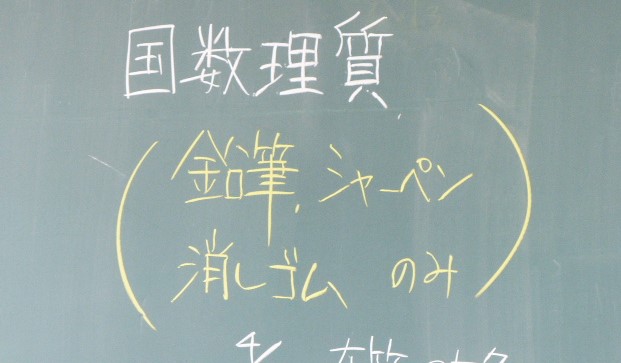 国数理質
(鉛筆、シャーペン
消しゴム のみ)
4/